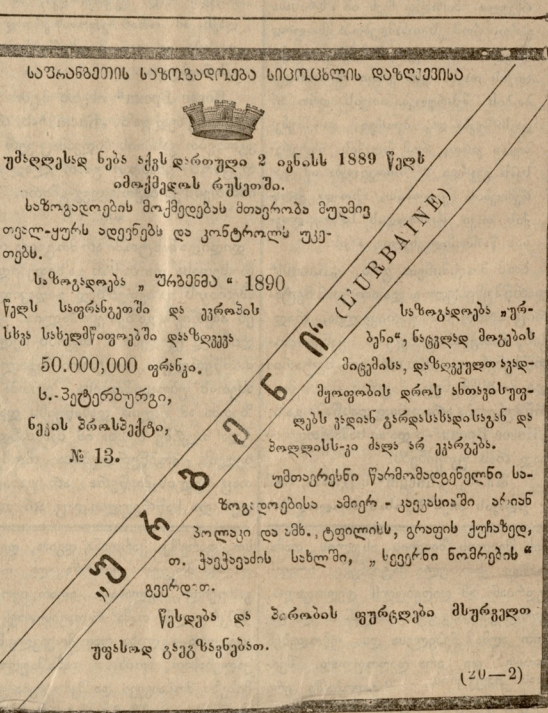 საფრანგეთის საზოგადოება სიცოცხლის დაზღვევისა
უმაღლესად ნება აქვს დართული 2 ივნისს 1889 წელს
იმოქმედოს რუსეთში.
საზოგადოების მოქმედებას მთავრობა მუდმივ
თვალ-ყურს ადევნებს და კონტროლს უკე-
თებს.
საზოგადოება „ ურბენმა “ 1890
წელს საფრანგეთში და ევროპის
სხვა სახელმწიფოებში დააზღვევა
50.000,000 ფრანკი.
ს.-პეტერბურგი,
ნევის პროსპექტი,
№ 13.
„ურბენი“ (L'URBAINE)
საზოგადოება „ურ-
ბენი“, ნაცვლად მოგების
მიცემისა, დაზღვეულთ ავად-
მყოფობის დროს ანთავისუფ-
ლებს ვადიან გარდასახადისაგან და
პოლისს-კი ძალა არ ეკარგება.
უმთავრესნი წარმომადგენელნი სა-
ზოგადოებისა ამიერ - კავკასიაში არიან
პოლაკი და ამხ., ტფილისს, გრაფის ქუჩაზედ,
თ. ჭავჭავაძის სახლში, „ სევერნი ნომრების “
გვერდით.
წესდება და პირობის ფურცლები მსურველთ
უფასოდ გაეგზავნებათ.
(20—2)